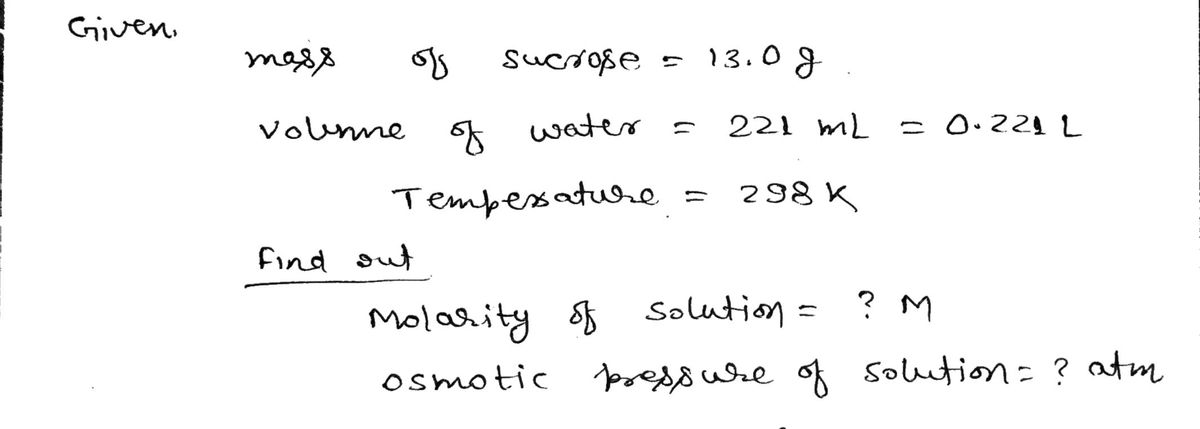 Given,
mass of sucrose = 13.0 g
volume of water = 221 mL = 0.221 L
Temperature = 298 K
Find out
Molarity of solution = ? M
osmotic pressure of solution = ? atm